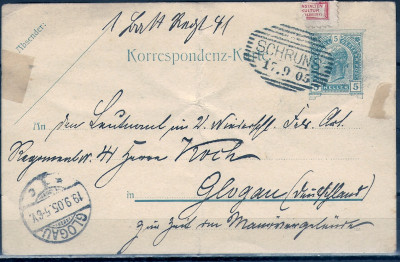 1 Batt Regt 41
Absender:
Korrespondenz-Karte
SCHRUNS
17.9 05
5 5
HELLER
An den Leutnant im 2. Niederschl. Feld. Art.
Regiment № 41 Herrn Koch
Glogau (Deutschland)
zur Zeit im Manövergelände
GLOGAU
19.9.05.5-6V.